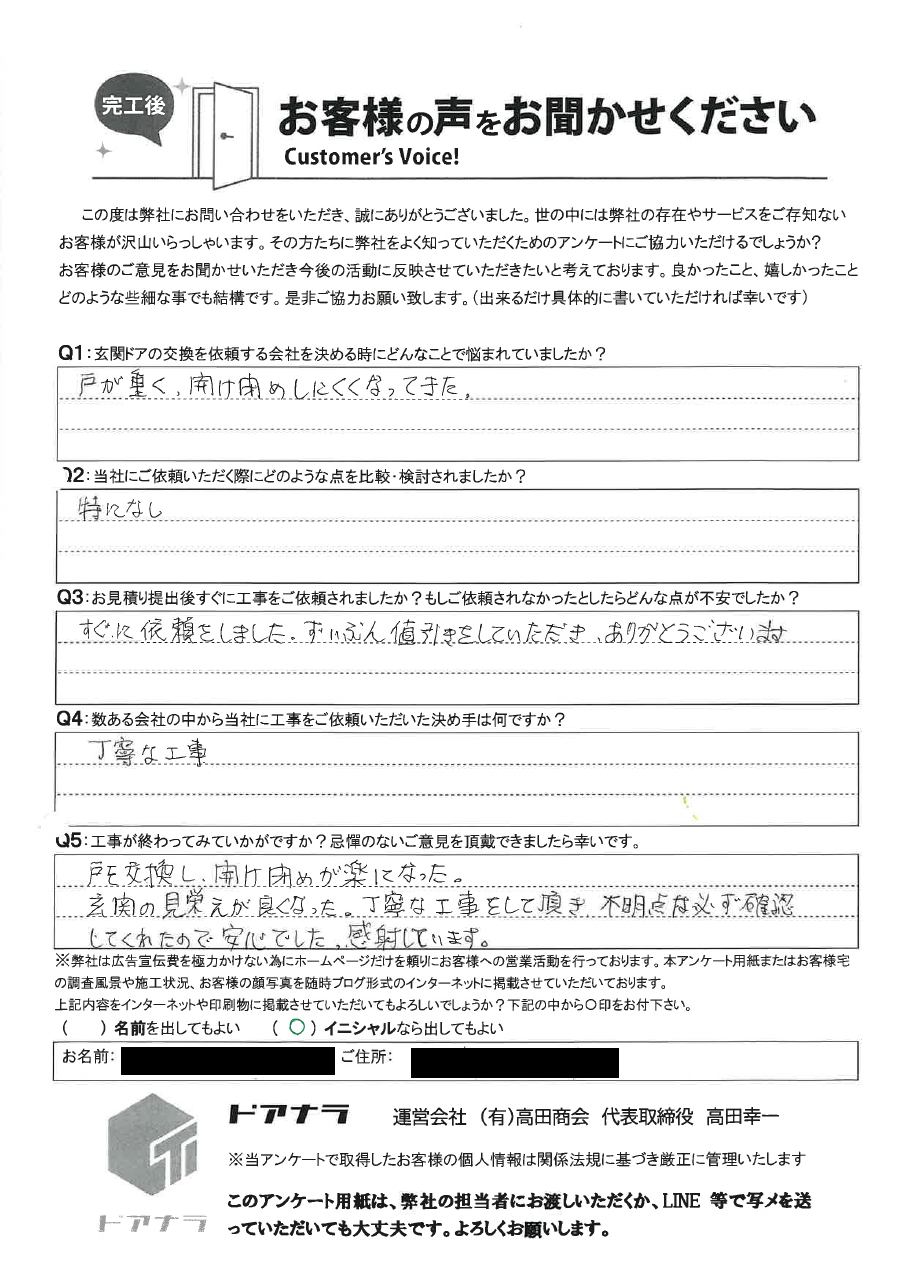 完工後
お客様の声をお聞かせください
Customer's Voice!
この度は弊社にお問い合わせをいただき、誠にありがとうございました。世の中には弊社の存在やサービスをご存知ない
お客様が沢山いらっしゃいます。その方たちに弊社をよく知っていただくためのアンケートにご協力いただけるでしょうか？
お客様のご意見をお聞かせいただき今後の活動に反映させていただきたいと考えております。良かったこと、嬉しかったこと
どのような些細な事でも結構です。是非ご協力お願い致します。（出来るだけ具体的に書いていただければ幸いです）
Q1：玄関ドアの交換を依頼する会社を決める時にどんなことで悩まれていましたか？
戸が重く、開け閉めしにくくなってきた。
Q2：当社にご依頼いただく際にどのような点を比較・検討されましたか？
特になし
Q3：お見積り提出後すぐに工事をご依頼されましたか？もしご依頼されなかったとしたらどんな点が不安でしたか？
すぐに依頼をしました。ずいぶん値引きをしていただき、ありがとうございます
Q4：数ある会社の中から当社に工事をご依頼いただいた決め手は何ですか？
丁寧な工事
Q5：工事が終わってみていかがですか？忌憚のないご意見を頂戴できましたら幸いです。
戸を交換し、開け閉めが楽になった。
玄関の見栄えが良くなった。丁寧な工事をして頂き 不明点な必ず確認
してくれたので安心でした。感射しています。
※弊社は広告宣伝費を極力かけない為にホームページだけを頼りにお客様への営業活動を行っております。本アンケート用紙またはお客様宅
の調査風景や施工状況、お客様の顔写真を随時ブログ形式のインターネットに掲載させていただいております。
上記内容をインターネットや印刷物に掲載させていただいてもよろしいでしょうか？下記の中から〇印をお付下さい。
（　）名前を出してもよい　（〇）イニシャルなら出してもよい
お名前：　ご住所：
ドアナラ　運営会社　（有）高田商会　代表取締役　高田幸一
※当アンケートで取得したお客様の個人情報は関係法規に基づき厳正に管理いたします
このアンケート用紙は、弊社の担当者にお渡しいただくか、LINE 等で写メを送
っていただいても大丈夫です。よろしくお願いします。
ドアナラ